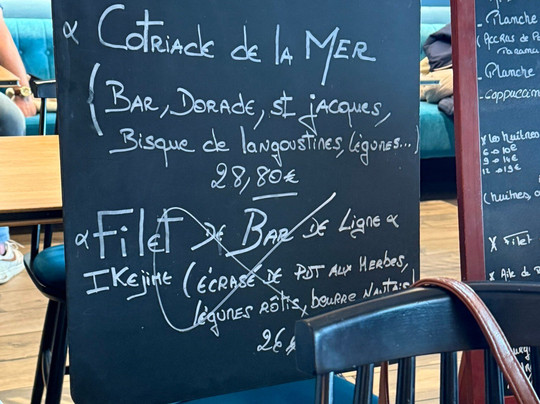 Cotriade de la Mer
(Bar, Dorade, St Jacques,
Bisque de langoustines, légumes...)
28,80€
Filet de Bar de Ligne
Ikejime (écrasé de PDT aux Herbes,
légumes rôtis, beurre Nantais)
26
Planche
(Accras de
Planche
Cappuccin
les huîtres
6 → 10€
9 → 14€
12 → 19€
(huîtres,
Filet
Aile de